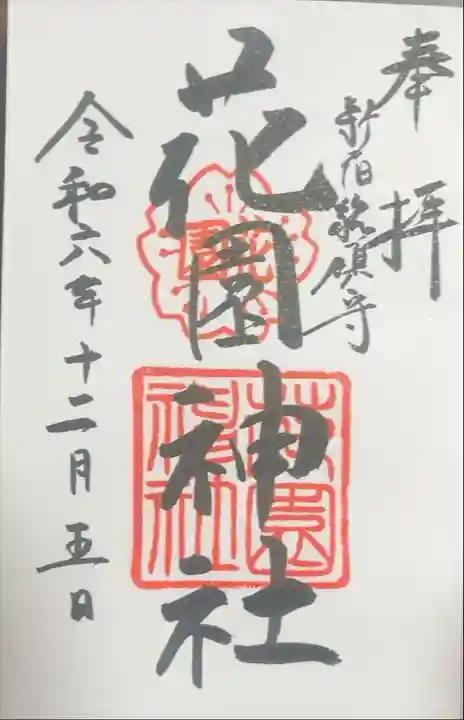 奉拝
新宿総鎮守
花園神社
花園
花園神社
令和六年十二月五日